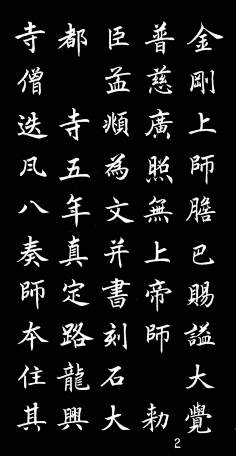 金剛上師膽巴賜謚大覺
普慈廣照無上帝師 勑
臣孟頫為文并書刻石大
都 寺五年真定路龍興
寺僧迭凡八奏師夲住其
2